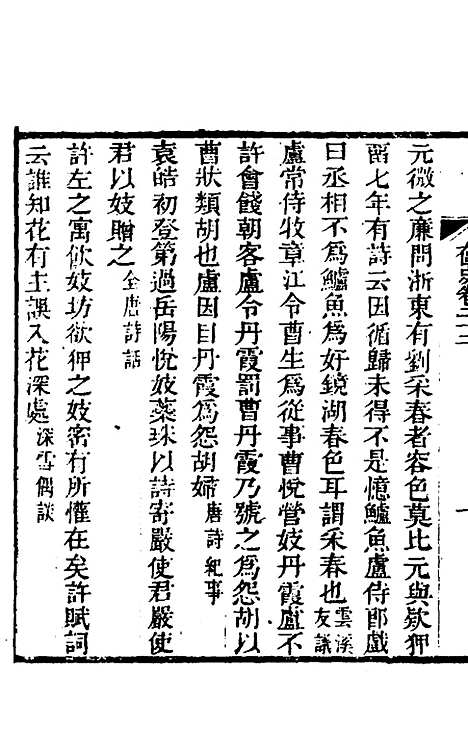 元微之廉問浙東有劉采春者容色莫比元與欵狎
畱七年有詩云因循歸未得不是憶鱸魚盧侍郎戲
曰丞相不爲鱸魚爲好鏡湖春色耳謂采春也雲溪友議
盧常侍牧章江令曹生爲從事曹悅營妓丹霞盧不
許會餞朝客盧令丹霞罰曹丹霞乃號之爲怨胡以
曹狀類胡也盧因目丹霞爲怨胡婦唐詩紀事
袁皓初登第過岳陽悅妓蘂珠以詩寄嚴使君嚴使
君以妓贈之全唐詩話
許左之寓飲妓坊欲狎之妓密有所懽在矣許賦詞
云誰知花有主誤入花深處深雪偶談